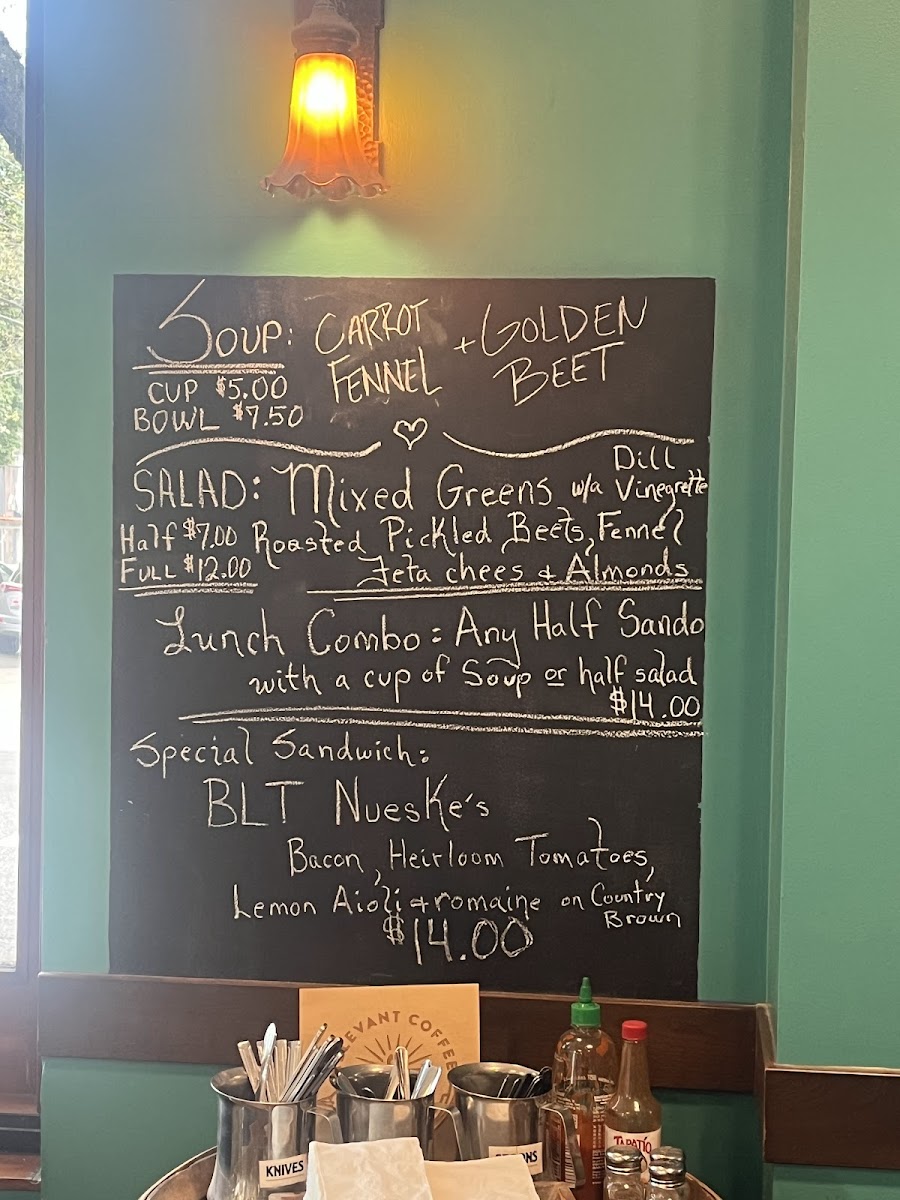 SOUP: CARROT FENNEL + GOLDEN BEET
CUP $5.00
BOWL $7.50
SALAD: Mixed Greens w/a Dill Vinegrette
Half $7.00 Roasted Pickled Beets, Fennel
FULL $12.00 Feta chees & Almonds
Lunch Combo: Any Half Sando
with a cup of Soup or half salad
$14.00
Special Sandwich:
BLT Nueske's
Bacon, Heirloom Tomatoes,
Lemon Aioli & romaine on Country Brown
$14.00
COFFEE
KNIVES
TAPATÍO